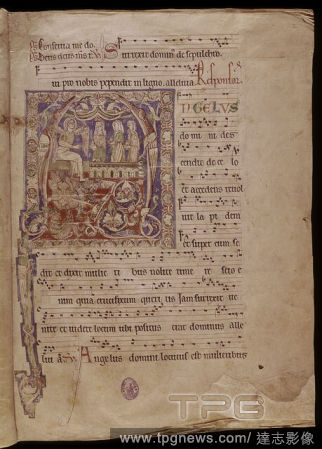 Conserva me do. Surrexit dominus de sepulchro
Deus deus meus
qui pro nobis pependit in ligno. alleluia Respons
ANGELUS
do mi ni des
cendit de ce lo
et accedens revol
vit la pi dem
et super eum se
dit et dixit mulie ri bus nolite time re scio e
nim quia crucifixum queri tis Jam surrexit ve
nite et videte locum ubi positus erat dominus alle
luia Angelus domini locutus est mulieribus
TPG
www.tpgnews.com / 達志影像